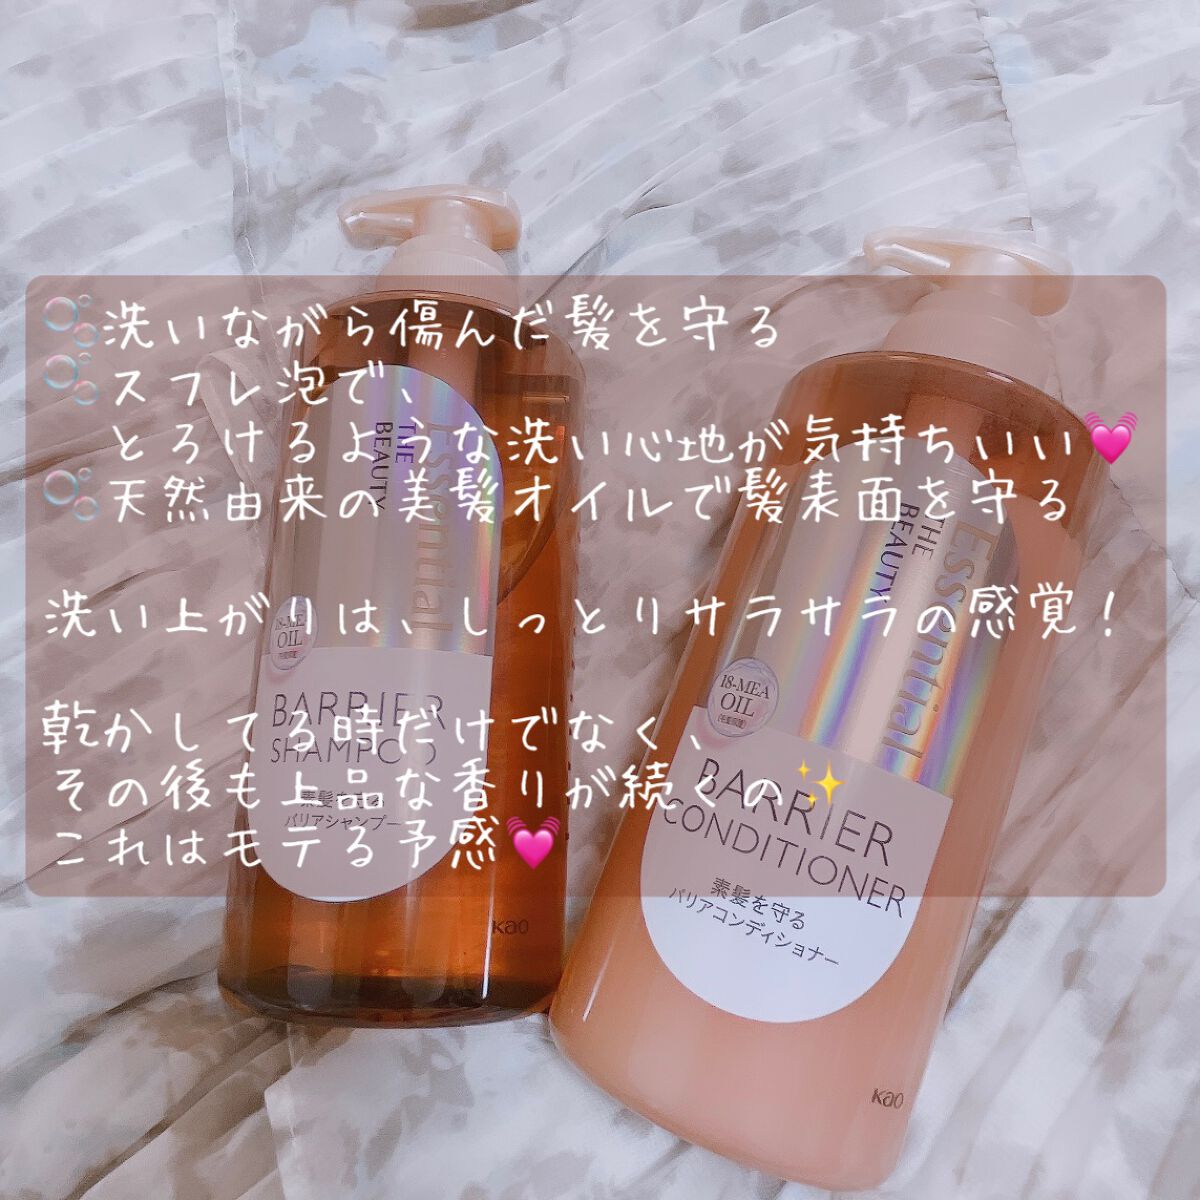 🫧洗いながら傷んだ髪を守る
🫧スフレ泡で、
とろけるような洗い心地が気持ちいい💓
🫧天然由来の美髪オイルで髪表面を守る
洗い上がりは、しっとりサラサラの感覚！
乾かしてる時だけでなく、
その後も上品な香りが続くの✨
これはモテる予感💓
Essential
THE
BEAUTY
18-MEA
OIL
BARRIER
SHAMPOO
素髪を守る
バリアシャンプー
Kao
Essential
THE
BEAUTY
18-MEA
OIL
(毛髪保護)
BARRIER
CONDITIONER
素髪を守る
バリアコンディショナー
Kao